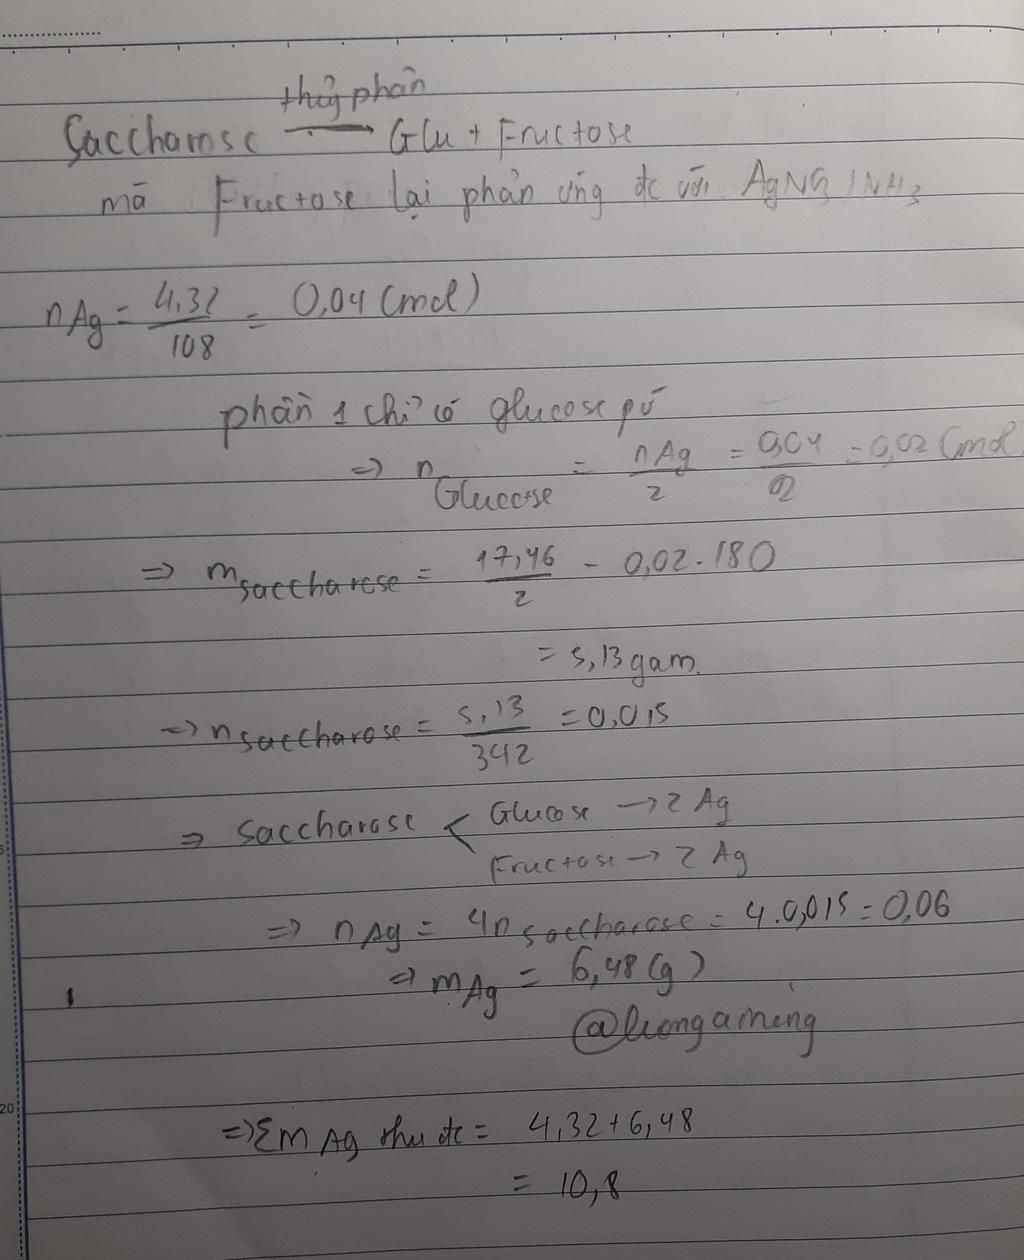 thủy phân
Saccharose → Glu + Fructose
mà Fructose lại phản ứng đc với AgNO3/NH3
nAg = 4,32/108 = 0,04 (mol)
phần 1 chỉ có glucose pứ
=> nGlucose = nAg/2 = 0,04/2 = 0,02 (mol
=> msaccharose = 17,46/2 - 0,02.180
= 5,13 gam.
=> nsaccharose = 5,13/342 = 0,015
=> saccharose < Glucose → 2 Ag
Fructose → 2 Ag
=> nAg = 4nsaccharose = 4.0,015 = 0,06
=> mAg = 6,48 (g)
=> Σm Ag thu đc = 4,32 + 6,48
= 10,8
20